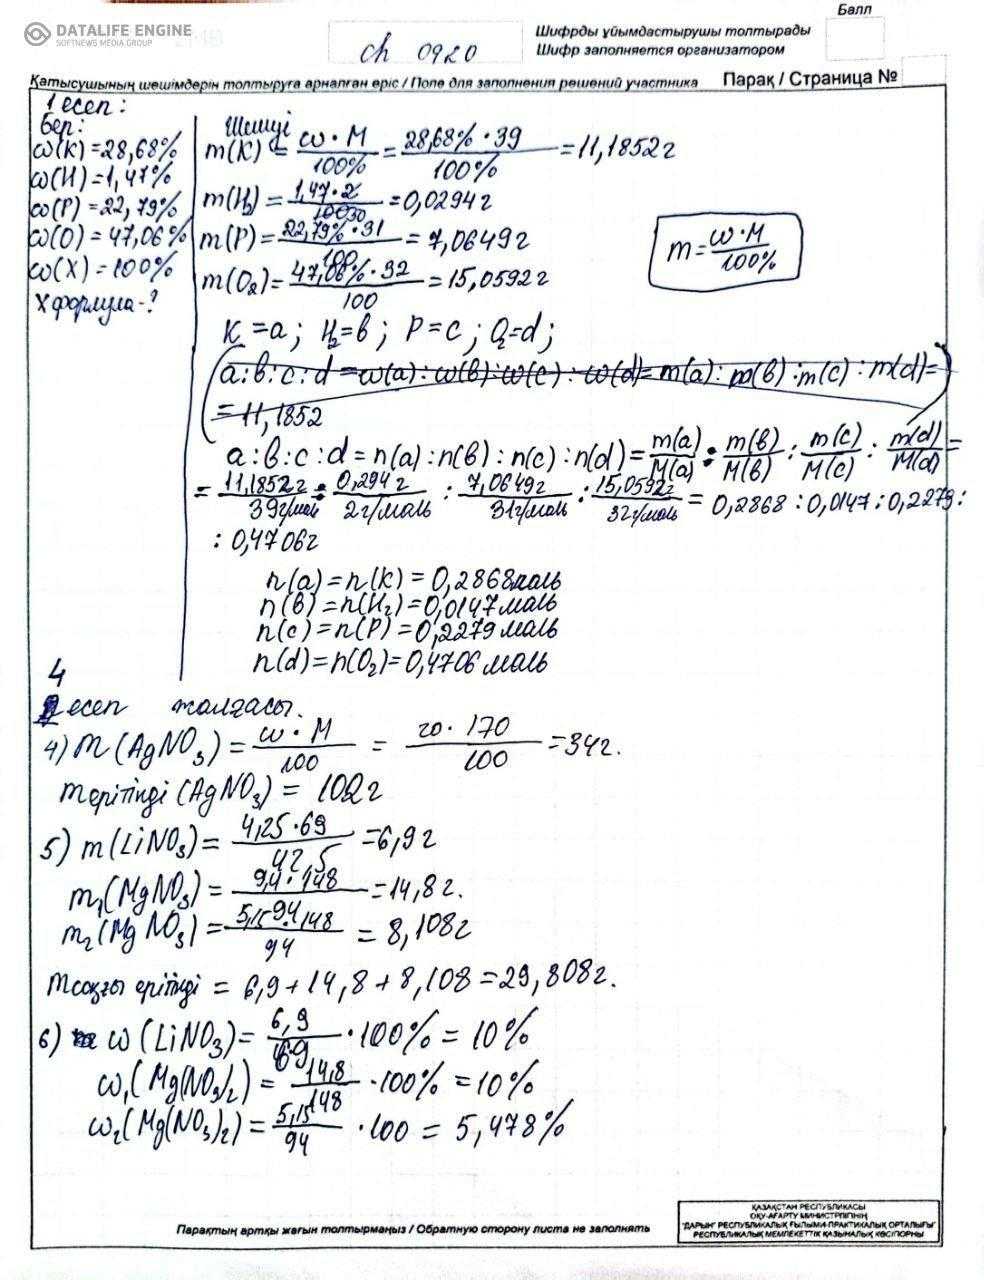 DATALIFE ENGINE
SOFTNEWS MEDIA GROUP
ch 0920
Балл
Шифрды ұйымдастырушы толтырады
Шифр заполняется организатором
Қатысушының шешімдерін толтыруға арналған еріс / Поле для заполнения решений участника
Парақ / Страница №
1 есеп:
Бер:
ω(K) =28,68%
ω(H) =1,47%
ω(P) =22,79%
ω(O) =47,06%
ω(X) =100%
X формула-?
Шешуі
m(K) = ω·M / 100% = 28,68%·39 / 100% = 11,1852г
m(H₂) = 1,47·2 / 100 = 0,0294г
m(P) = 22,79%·31 / 100 = 7,0649г
m(O₂) = 47,06%·32 / 100 = 15,0592г
m = ω·M / 100%
K =a; H₂=b; P=c; O₂=d;
a:b:c:d = ω(a):ω(b):ω(c):ω(d) = m(a):m(b):m(c):m(d)=
= 11,1852
a:b:c:d = n(a):n(b):n(c):n(d) = m(a)/M(a) : m(b)/M(b) : m(c)/M(c) : m(d)/M(d) =
= 11,1852г / 39г/моль : 0,294г / 2г/моль : 7,0649г / 31г/моль : 15,0592г / 32г/моль = 0,2868 : 0,0147 : 0,2279 :
: 0,4706г
n(a) = n(K) = 0,2868моль
n(b) = n(H₂) = 0,0147моль
n(c) = n(P) = 0,2279моль
n(d) = n(O₂) = 0,4706моль
4
есеп жалғасы.
4) m(AgNO₃) = ω·M / 100 = 20·170 / 100 = 34г.
mерітінді (AgNO₃) = 102г
5) m(LiNO₃) = 4,25·69 / 42,5 = 6,9г
m₁(MgNO₃) = 9,4·148 = 14,8г.
m₂(MgNO₃) = 5,15·148 / 94 = 8,108г
mсоңғы ерітінді = 6,9+14,8+8,108 = 29,808г.
6) ω(LiNO₃) = 6,9 / 69 ·100% = 10%
ω₁(Mg(NO₃)₂) = 14,8 / 148 ·100% = 10%
ω₂(Mg(NO₃)₂) = 5,15 / 94 ·100 = 5,478%
Парақтың артқы жағын толтырмаңыз / Обратную сторону листа не заполнять
ҚАЗАҚСТАН РЕСПУБЛИКАСЫ
ОҚУ-АҒАРТУ МИНИСТРЛІГІНІҢ
"ДАРЫН" РЕСПУБЛИКАЛЫҚ ҒЫЛЫМИ-ПРАКТИКАЛЫҚ ОРТАЛЫҒЫ"
РЕСПУБЛИКАЛЫҚ МЕМЛЕКЕТТІК ҚАЗЫНАЛЫҚ КӘСІПОРНЫ